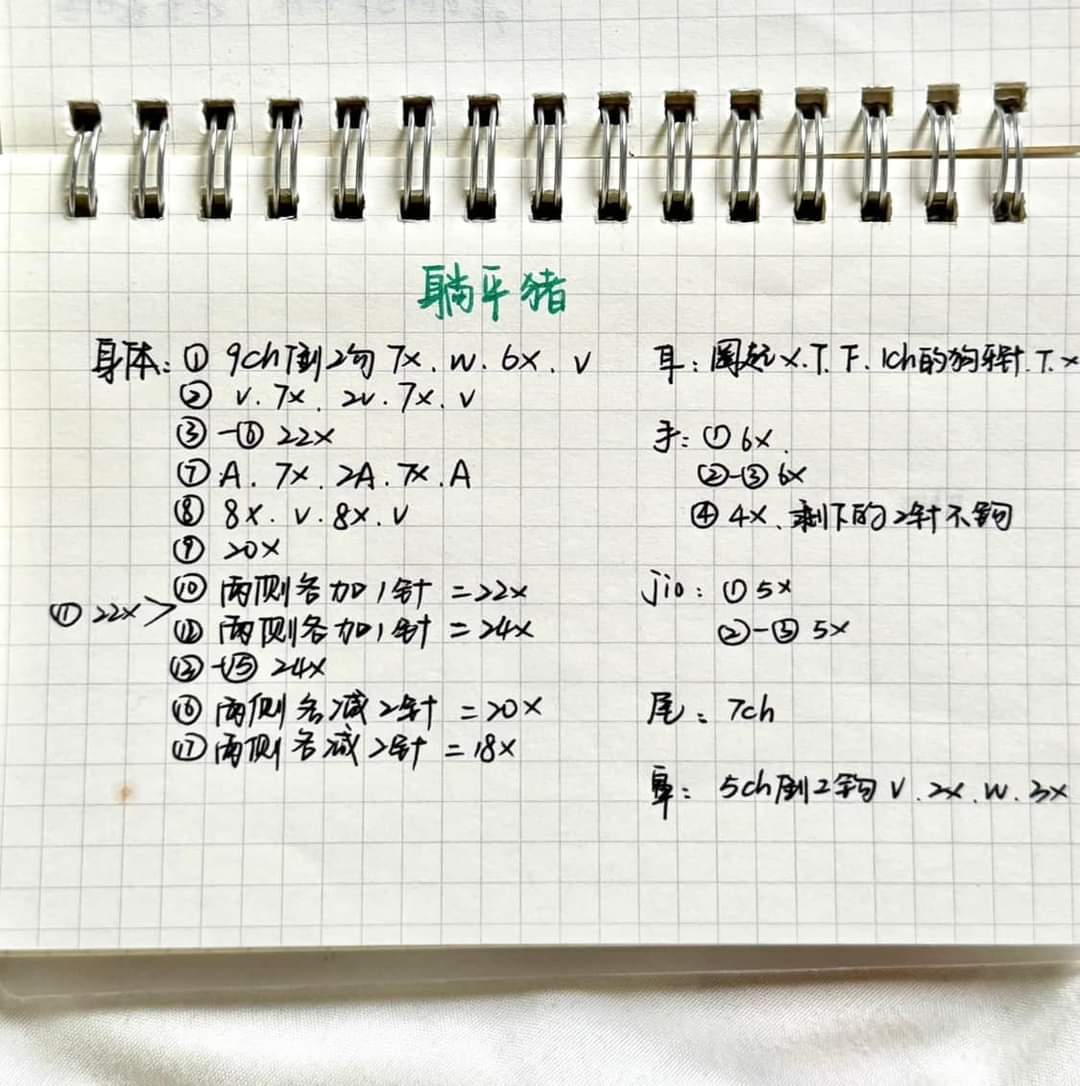 躺平猪
身体: ① 9ch 倒2勾 7x. w. 6x. v
② v. 7x. 2v. 7x. v
③-⑥ 22x
⑦ A. 7x. 2A. 7x. A
⑧ 8x. v. 8x. v
⑨ 20x
⑩ 两侧各加1针 =22x
⑪ 22x >
⑫ 两侧各加1针 =24x
⑬-⑮ 24x
⑯ 两侧各减2针 =20x
⑰ 两侧各减2针 =18x
耳: 圈起 x. T. F. 1ch的狗牙针. T. x
手: ① 6x.
②-③ 6x
④ 4x. 剩下的2针不钩
jio: ① 5x
②-③ 5x
尾: 7ch
鼻: 5ch 倒2钩 v. 2x. w. 3x